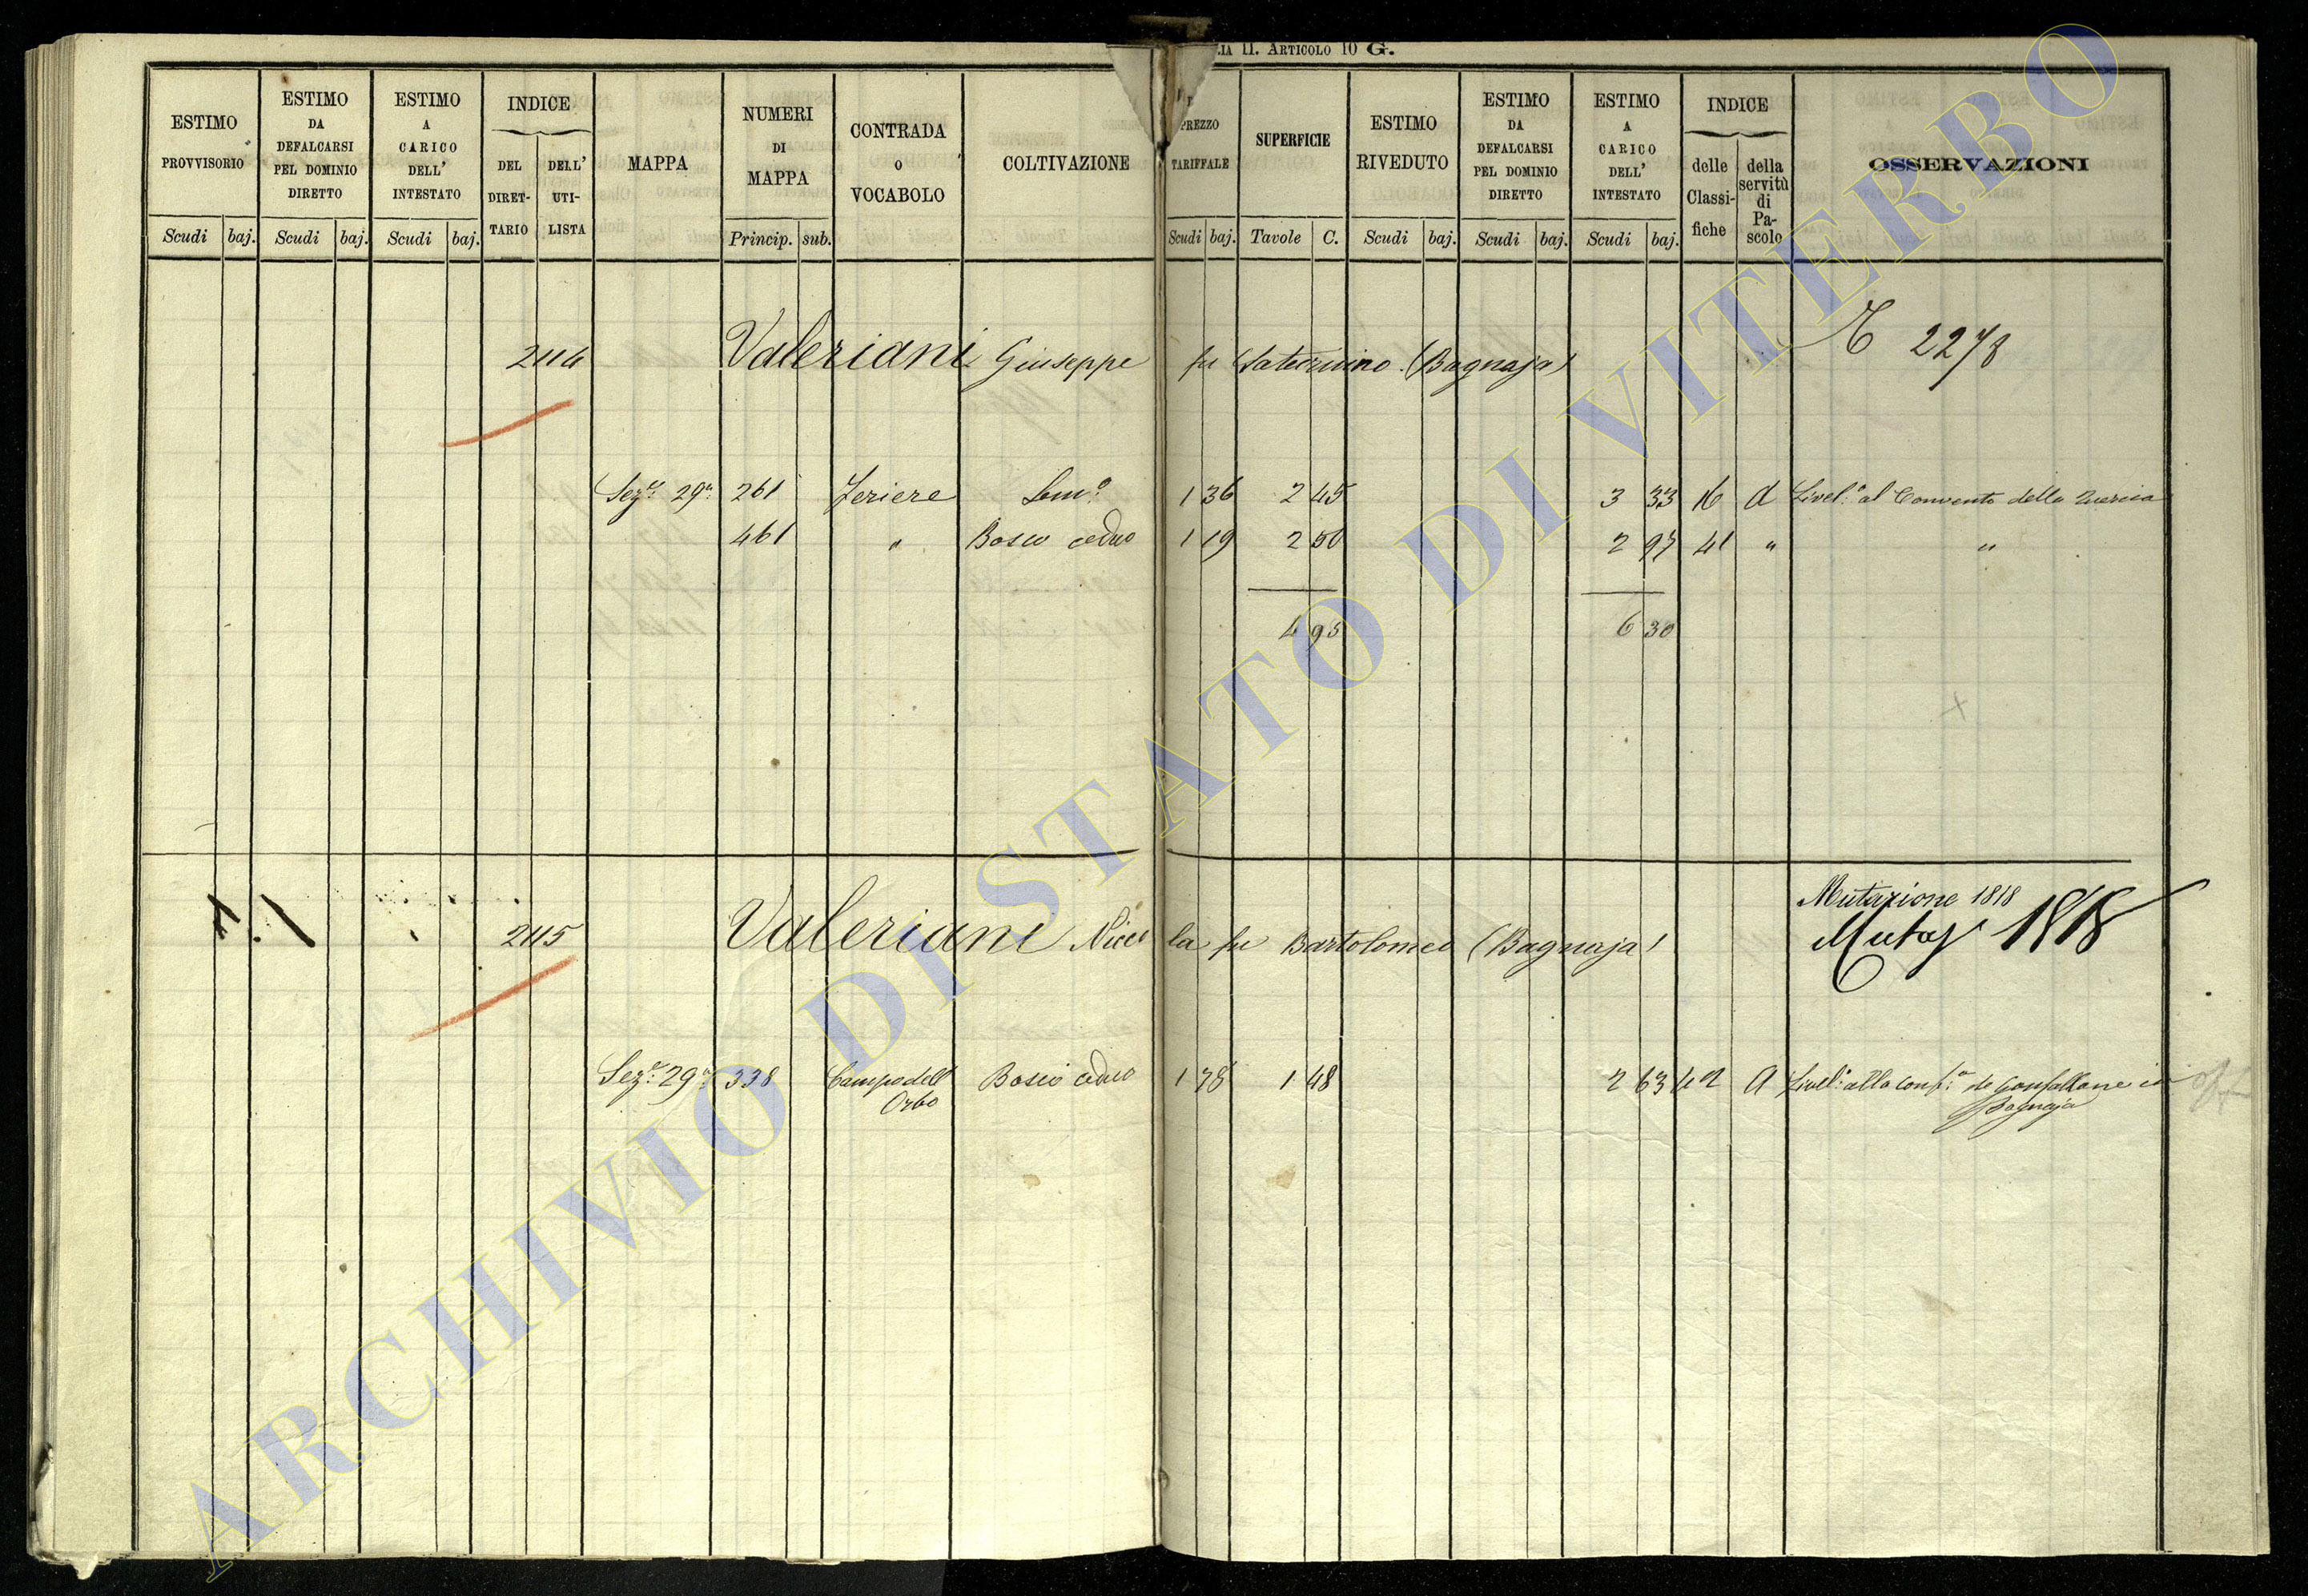 LIA II. ARTICOLO 10 G.
ESTIMO PROVVISORIO
ESTIMO DA DEFALCARSI PEL DOMINIO DIRETTO
ESTIMO A CARICO DELL' INTESTATO
INDICE
DEL DIRETTARIO
DELL' UTILISTA
MAPPA
NUMERI DI MAPPA
CONTRADA O VOCABOLO
COLTIVAZIONE
PREZZO TARIFFALE
SUPERFICIE
ESTIMO RIVEDUTO
ESTIMO DA DEFALCARSI PEL DOMINIO DIRETTO
ESTIMO A CARICO DELL' INTESTATO
INDICE
delle Classifiche
della servitù di Pascolo
OSSERVAZIONI
Scudi baj. Scudi baj. Scudi baj. Princip. sub. Scudi baj. Tavole C. Scudi baj. Scudi baj. Scudi baj.
2114 Valeriani Giuseppe fu Saturnino (Bagnaja) 2278
Sez.e 29a 261 Feriere Sem.o 1 36 2 45 3 33 16 A Livel.o al Convento della Quercia
461 " Bosco ceduo 1 19 2 50 2 97 41 " "
4 95 6 30
Mutazione 1818
2115 Valeriani Niccola fu Bartolomeo (Bagnaja) Mutaz 1818
Sez.e 29a 338 Campo dell' Bosco ceduo 1 78 1 48 2 63 42 A Livel.o alla Conf.a de Gonfallone in
Orbo Bagnaja
ARCHIVIO DI STATO DI VITERBO